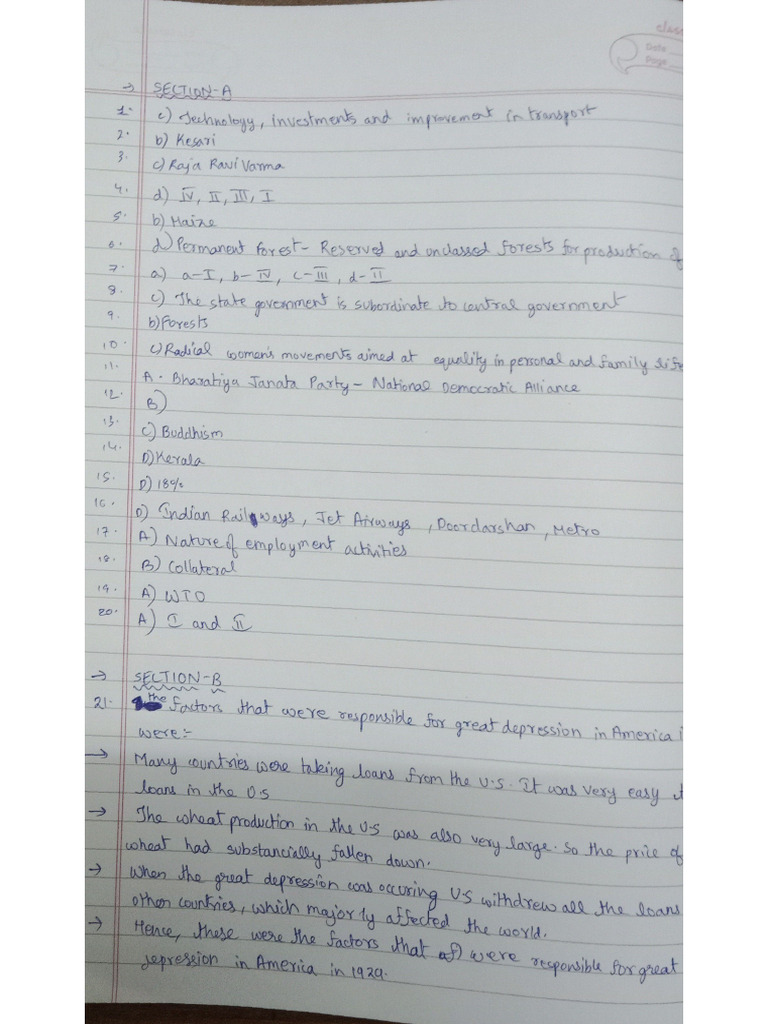 class
Date
Page
→ SECTION-A
1. c) Technology, investments and improvement in transport
2. b) Kesari
3. c) Raja Ravi Varma
4. d) IV, II, III, I
5. b) Maize
6. d) Permanent forest- Reserved and unclassed forests for production of
7. a) a-I, b-IV, c-III, d-II
8. c) The state government is subordinate to central government
9. b) Forests
10. c) Radical women's movements aimed at equality in personal and family life
11. A. Bharatiya Janata Party - National Democratic Alliance
12. B)
13. C) Buddhism
14. D) Kerala
15. D) 18%
16. D) Indian Railways, Jet Airways, Doordarshan, Metro
17. A) Nature of employment activities
18. B) Collateral
19. A) WTO
20. A) I and II
→ SECTION-B
21. the factors that were responsible for great depression in America i
were:-
→ Many countries were taking loans from the U.S. It was very easy t
loans in the U.S
→ The wheat production in the U.S was also very large. So the price of
wheat had substancially fallen down.
→ When the great depression was occuring U.S withdrew all the loans
other countries, which majorly affected the world.
→ Hence, these were the factors that were responsible for great
depression in America in 1929.